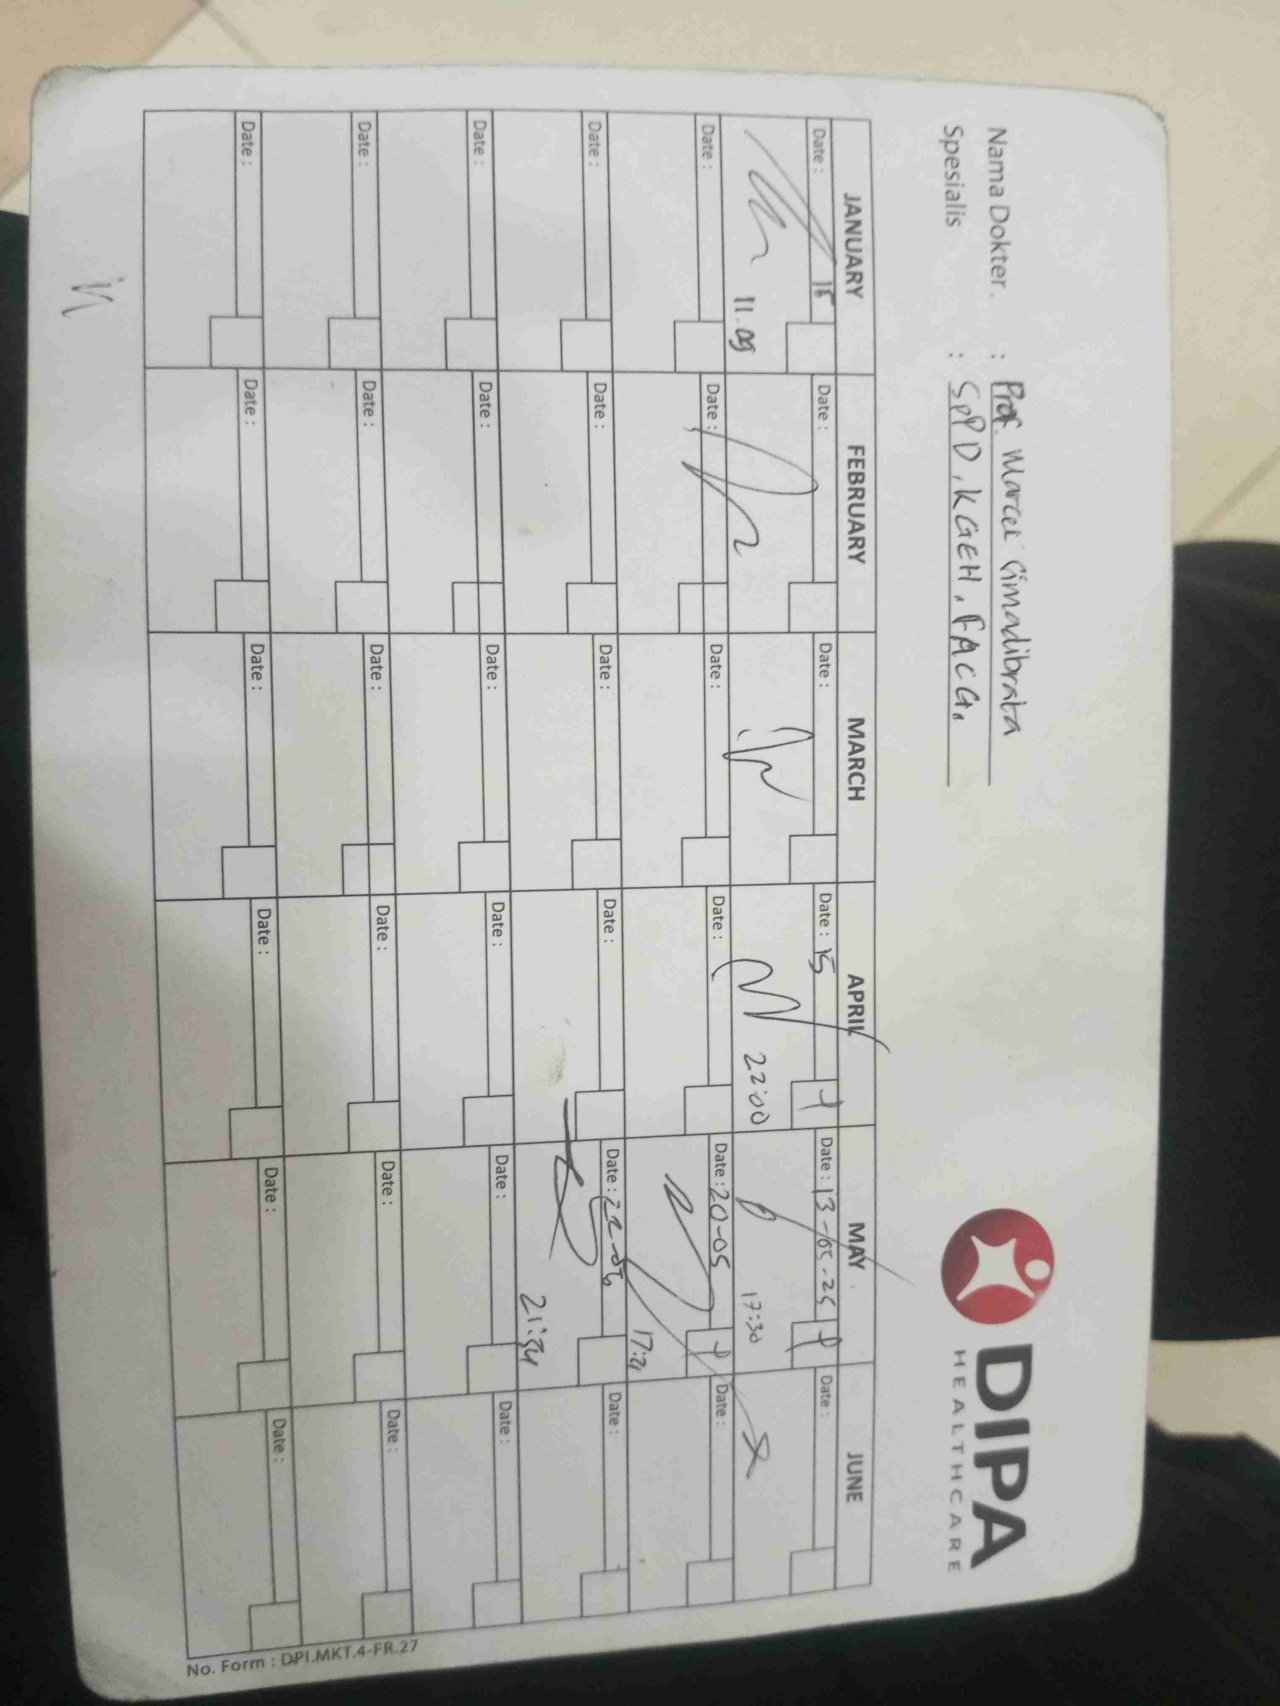 DIPA
HEALTHCARE
Nama Dokter : Prof. Marcel Simadibrata
Spesialis : SpPD, KGEH, FACG.
JANUARY FEBRUARY MARCH APRIL MAY JUNE
Date : 18 Date : Date : Date : 15 Date : 13-05-25 Date :
11.09 22:00 17:30
Date : Date : Date : Date : Date : 20-05 Date :
17:21
Date : Date : Date : Date : Date : Date :
21:34
Date : Date : Date : Date : Date : Date :
Date : Date : Date : Date : Date : Date :
Date : Date : Date : Date : Date : Date :
No. Form : DPI.MKT.4-FR.27